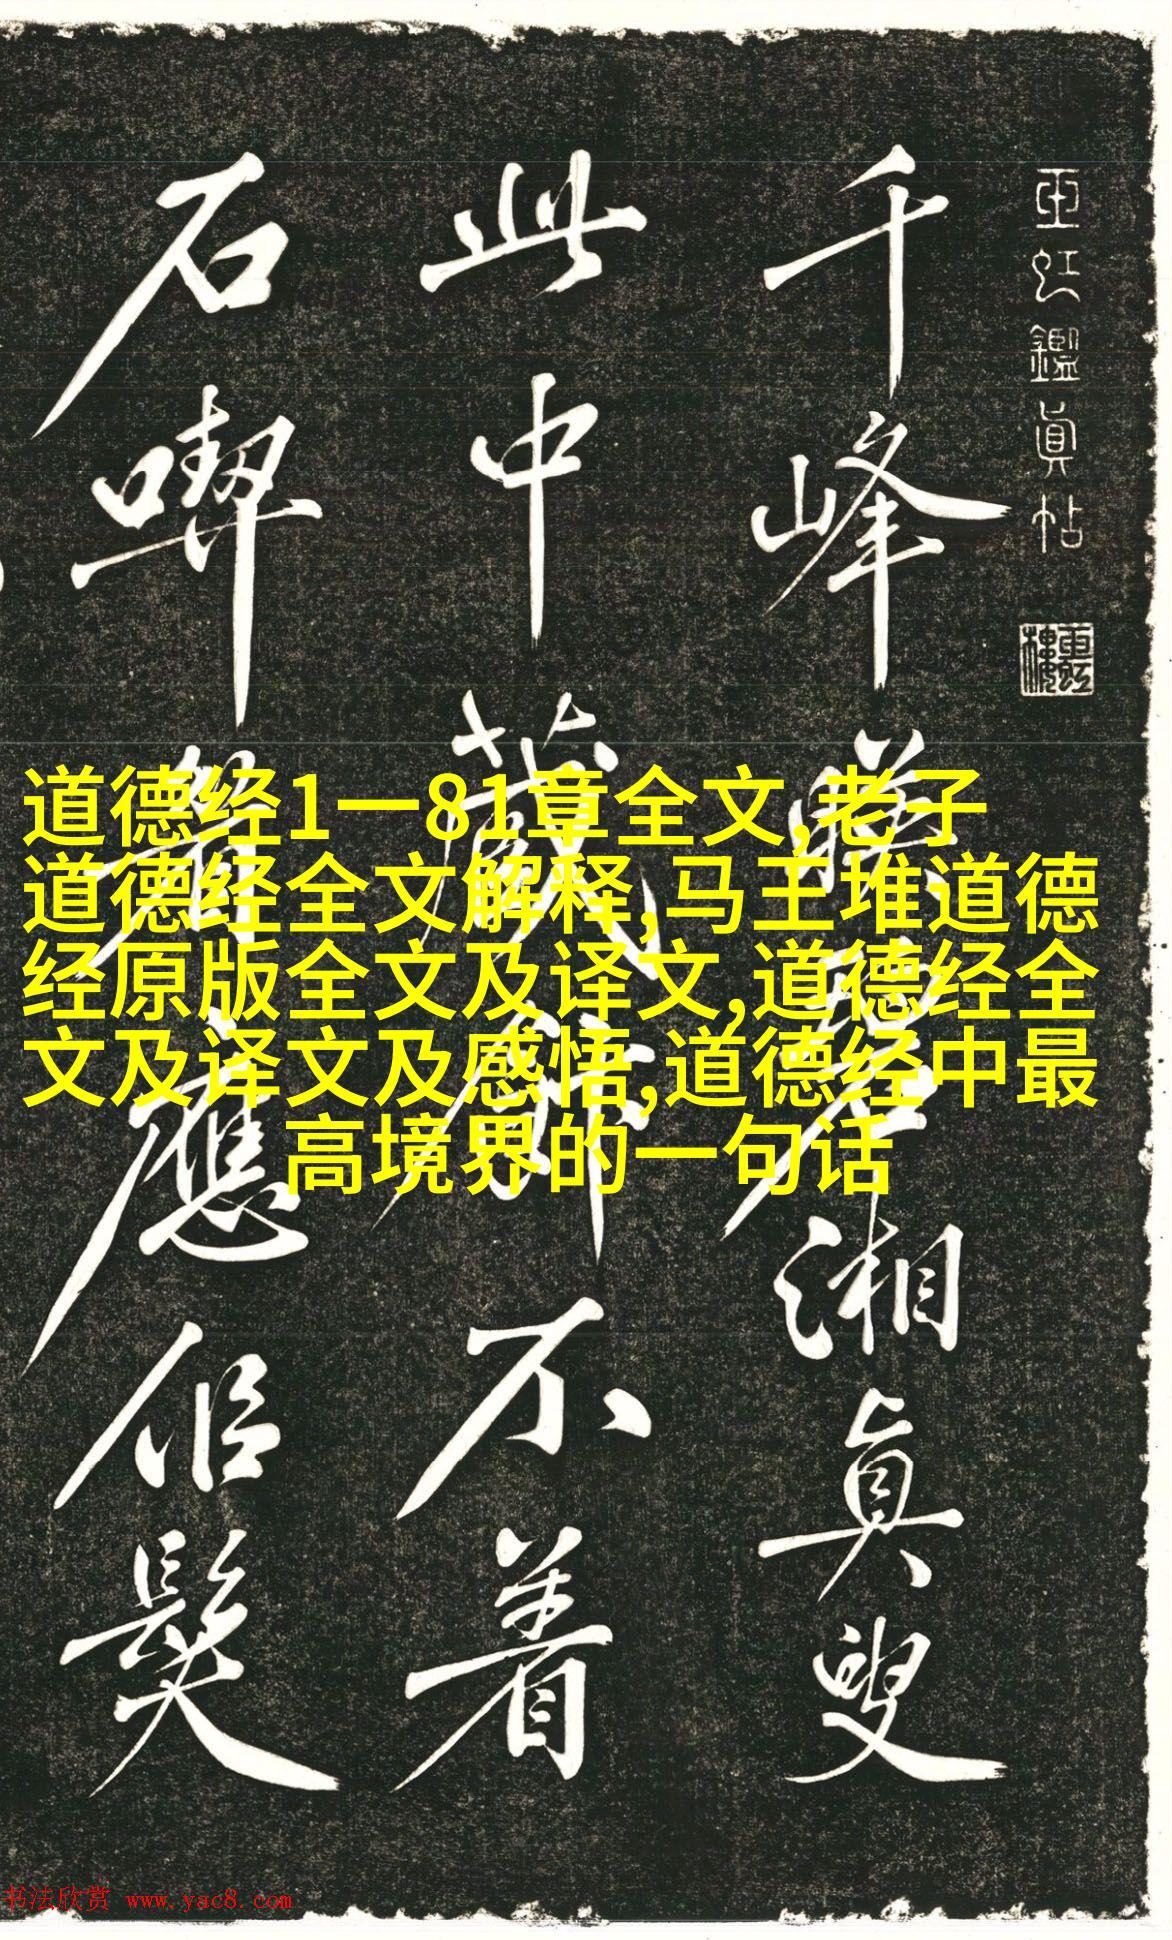 玉虹鑑真帖
玉虹樓
千峰映碧湘真叟
此中藏飯不
石喫眉應似髮
道德经1一81章全文,老子
道德经全文解释,马王堆道德
经原版全文及译文,道德经全
文及译文及感悟,道德经中最
高境界的一句话
书法欣赏 www.yac8.com